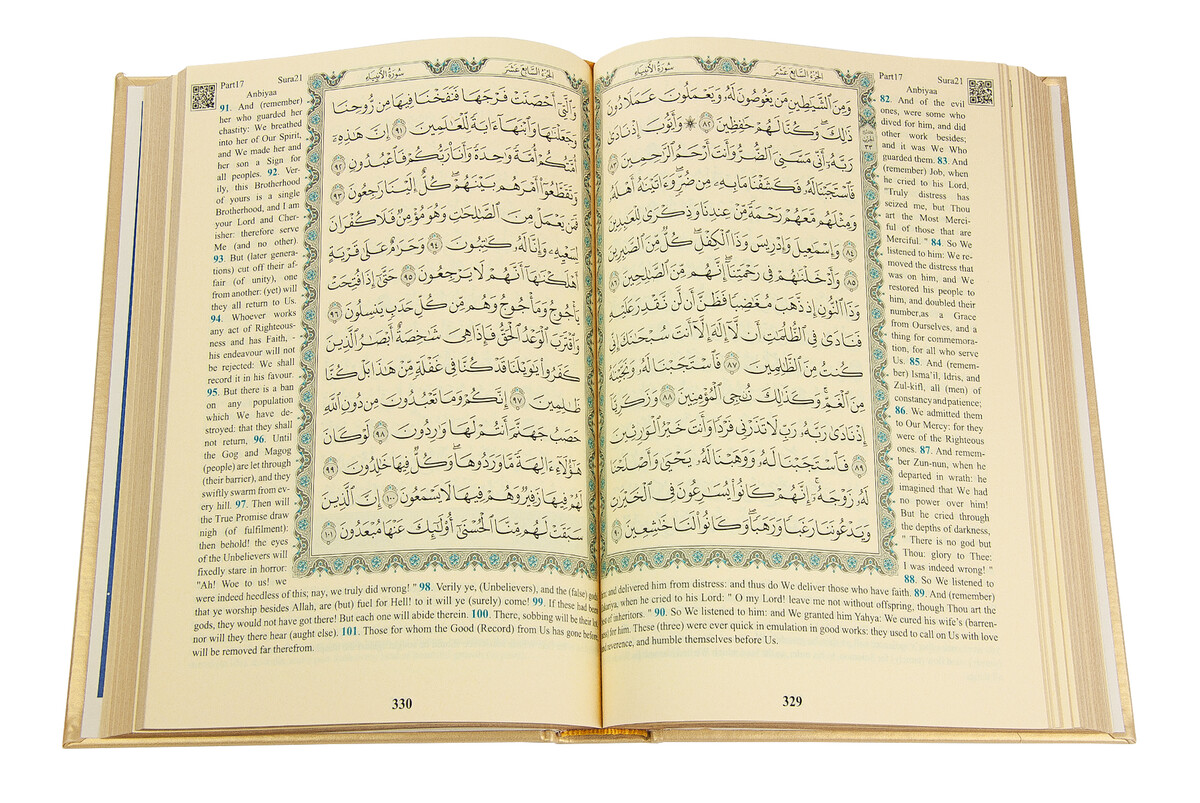 الجُزْءُ السَّابِعَ عَشَرَ سُورَةُ الأَنْبِيَاءِ
وَمِنَ ٱلشَّيَٰطِينِ مَن يَغُوصُونَ لَهُۥ وَيَعْمَلُونَ عَمَلًا دُونَ
ذَٰلِكَۖ وَكُنَّا لَهُمْ حَٰفِظِينَ ٨٢ ۞ وَأَيُّوبَ إِذْ نَادَىٰ
رَبَّهُۥٓ أَنِّى مَسَّنِىَ ٱلضُّرُّ وَأَنتَ أَرْحَمُ ٱلرَّٰحِمِينَ ٨٣
فَٱسْتَجَبْنَا لَهُۥ فَكَشَفْنَا مَا بِهِۦ مِن ضُرٍّۖ وَءَاتَيْنَٰهُ أَهْلَهُۥ
وَمِثْلَهُم مَّعَهُمْ رَحْمَةً مِّنْ عِندِنَا وَذِكْرَىٰ لِلْعَٰبِدِينَ
٨٤ وَإِسْمَٰعِيلَ وَإِدْرِيسَ وَذَا ٱلْكِفْلِۖ كُلٌّ مِّنَ ٱلصَّٰبِرِينَ
٨٥ وَأَدْخَلْنَٰهُمْ فِى رَحْمَتِنَآۖ إِنَّهُم مِّنَ ٱلصَّٰلِحِينَ ٨٦
وَذَا ٱلنُّونِ إِذ ذَّهَبَ مُغَٰضِبًا فَظَنَّ أَن لَّن نَّقْدِرَ عَلَيْهِ
فَنَادَىٰ فِى ٱلظُّلُمَٰتِ أَن لَّآ إِلَٰهَ إِلَّآ أَنتَ سُبْحَٰنَكَ إِنِّى
كُنتُ مِنَ ٱلظَّٰلِمِينَ ٨٧ فَٱسْتَجَبْنَا لَهُۥ وَنَجَّيْنَٰهُ
مِنَ ٱلْغَمِّۚ وَكَذَٰلِكَ نُۨجِى ٱلْمُؤْمِنِينَ ٨٨ وَزَكَرِيَّآ
إِذْ نَادَىٰ رَبَّهُۥ رَبِّ لَا تَذَرْنِى فَرْدًا وَأَنتَ خَيْرُ ٱلْوَٰرِثِينَ
٨٩ فَٱسْتَجَبْنَا لَهُۥ وَوَهَبْنَا لَهُۥ يَحْيَىٰ وَأَصْلَحْنَا
لَهُۥ زَوْجَهُۥٓۚ إِنَّهُمْ كَانُوا۟ يُسَٰرِعُونَ فِى ٱلْخَيْرَٰتِ
وَيَدْعُونَنَا رَغَبًا وَرَهَبًاۖ وَكَانُوا۟ لَنَا خَٰشِعِينَ ٩٠
Part17 Sura21
Anbiyaa
82. And of the evil
ones, were some who
dived for him, and did
other work besides;
and it was We Who
guarded them. 83. And
(remember) Job, when
he cried to his Lord,
"Truly distress has
seized me, but Thou
art the Most Merci-
ful of those that are
Merciful. " 84. So We
listened to him: We re-
moved the distress that
was on him, and We
restored his people to
him, and doubled their
number,as a Grace
from Ourselves, and a
thing for commemora-
tion, for all who serve
Us. 85. And (remem-
ber) Isma'il, Idris, and
Zul-kifl, all (men) of
constancy and patience;
86. We admitted them
to Our Mercy: for they
were of the Righteous
ones. 87. And remem-
ber Zun-nun, when he
departed in wrath: he
imagined that We had
no power over him!
But he cried through
the depths of darkness,
" There is no god but
Thou: glory to Thee:
I was indeed wrong! "
88. So We listened to
and delivered him from distress: and thus do We deliver those who have faith. 89. And (remember)
when he cried to his Lord: " O my Lord! leave me not without offspring, though Thou art the
of inheritors. " 90. So We listened to him: and We granted him Yahya: We cured his wife's (barren-
for him. These (three) were ever quick in emulation in good works: they used to call on Us with love
reverence, and humble themselves before Us.
329
الجُزْءُ السَّابِعَ عَشَرَ سُورَةُ الأَنْبِيَاءِ
وَٱلَّتِىٓ أَحْصَنَتْ فَرْجَهَا فَنَفَخْنَا فِيهَا مِن رُّوحِنَا
وَجَعَلْنَٰهَا وَٱبْنَهَآ ءَايَةً لِّلْعَٰلَمِينَ ٩١ إِنَّ هَٰذِهِۦٓ
أُمَّتُكُمْ أُمَّةً وَٰحِدَةً وَأَنَا۠ رَبُّكُمْ فَٱعْبُدُونِ ٩٢
وَتَقَطَّعُوٓا۟ أَمْرَهُم بَيْنَهُمْۖ كُلٌّ إِلَيْنَا رَٰجِعُونَ ٩٣
فَمَن يَعْمَلْ مِنَ ٱلصَّٰلِحَٰتِ وَهُوَ مُؤْمِنٌ فَلَا كُفْرَانَ
لِسَعْيِهِۦ وَإِنَّا لَهُۥ كَٰتِبُونَ ٩٤ وَحَرَٰمٌ عَلَىٰ قَرْيَةٍ
أَهْلَكْنَٰهَآ أَنَّهُمْ لَا يَرْجِعُونَ ٩٥ حَتَّىٰٓ إِذَا فُتِحَتْ
يَأْجُوجُ وَمَأْجُوجُ وَهُم مِّن كُلِّ حَدَبٍ يَنسِلُونَ ٩٦
وَٱقْتَرَبَ ٱلْوَعْدُ ٱلْحَقُّ فَإِذَا هِىَ شَٰخِصَةٌ أَبْصَٰرُ ٱلَّذِينَ
كَفَرُوا۟ يَٰوَيْلَنَا قَدْ كُنَّا فِى غَفْلَةٍ مِّنْ هَٰذَا بَلْ كُنَّا
ظَٰلِمِينَ ٩٧ إِنَّكُمْ وَمَا تَعْبُدُونَ مِن دُونِ ٱللَّهِ
حَصَبُ جَهَنَّمَ أَنتُمْ لَهَا وَٰرِدُونَ ٩٨ لَوْ كَانَ
هَٰٓؤُلَآءِ ءَالِهَةً مَّا وَرَدُوهَاۖ وَكُلٌّ فِيهَا خَٰلِدُونَ ٩٩
لَهُمْ فِيهَا زَفِيرٌ وَهُمْ فِيهَا لَا يَسْمَعُونَ ١٠٠ إِنَّ ٱلَّذِينَ
سَبَقَتْ لَهُم مِّنَّا ٱلْحُسْنَىٰٓ أُو۟لَٰٓئِكَ عَنْهَا مُبْعَدُونَ ١٠١
Part17 Sura21
Anbiyaa
91. And (remember)
her who guarded her
chastity: We breathed
into her of Our Spirit,
and We made her and
her son a Sign for
all peoples. 92. Ver-
ily, this Brotherhood
of yours is a single
Brotherhood, and I am
your Lord and Cher-
isher: therefore serve
Me (and no other).
93. But (later genera-
tions) cut off their af-
fair (of unity), one
from another: (yet) will
they all return to Us.
94. Whoever works
any act of Righteous-
ness and has Faith, -
his endeavour will not
be rejected: We shall
record it in his favour.
95. But there is a ban
on any population
which We have de-
stroyed: that they shall
not return, 96. Until
the Gog and Magog
(people) are let through
(their barrier), and they
swiftly swarm from ev-
ery hill. 97. Then will
the True Promise draw
nigh (of fulfilment):
then behold! the eyes
of the Unbelievers will
fixedly stare in horror:
"Ah! Woe to us! we
were indeed heedless of this; nay, we truly did wrong! " 98. Verily ye, (Unbelievers), and the (false) gods
that ye worship besides Allah, are (but) fuel for Hell! to it will ye (surely) come! 99. If these had been
gods, they would not have got there! But each one will abide therein. 100. There, sobbing will be their lot,
nor will they there hear (aught else). 101. Those for whom the Good (Record) from Us has gone before,
will be removed far therefrom.
330